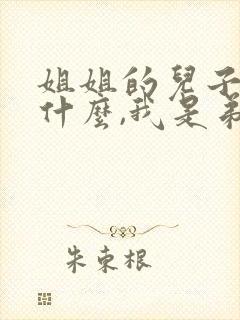 姐姐的兒子
什麼,我是弟
朱束根